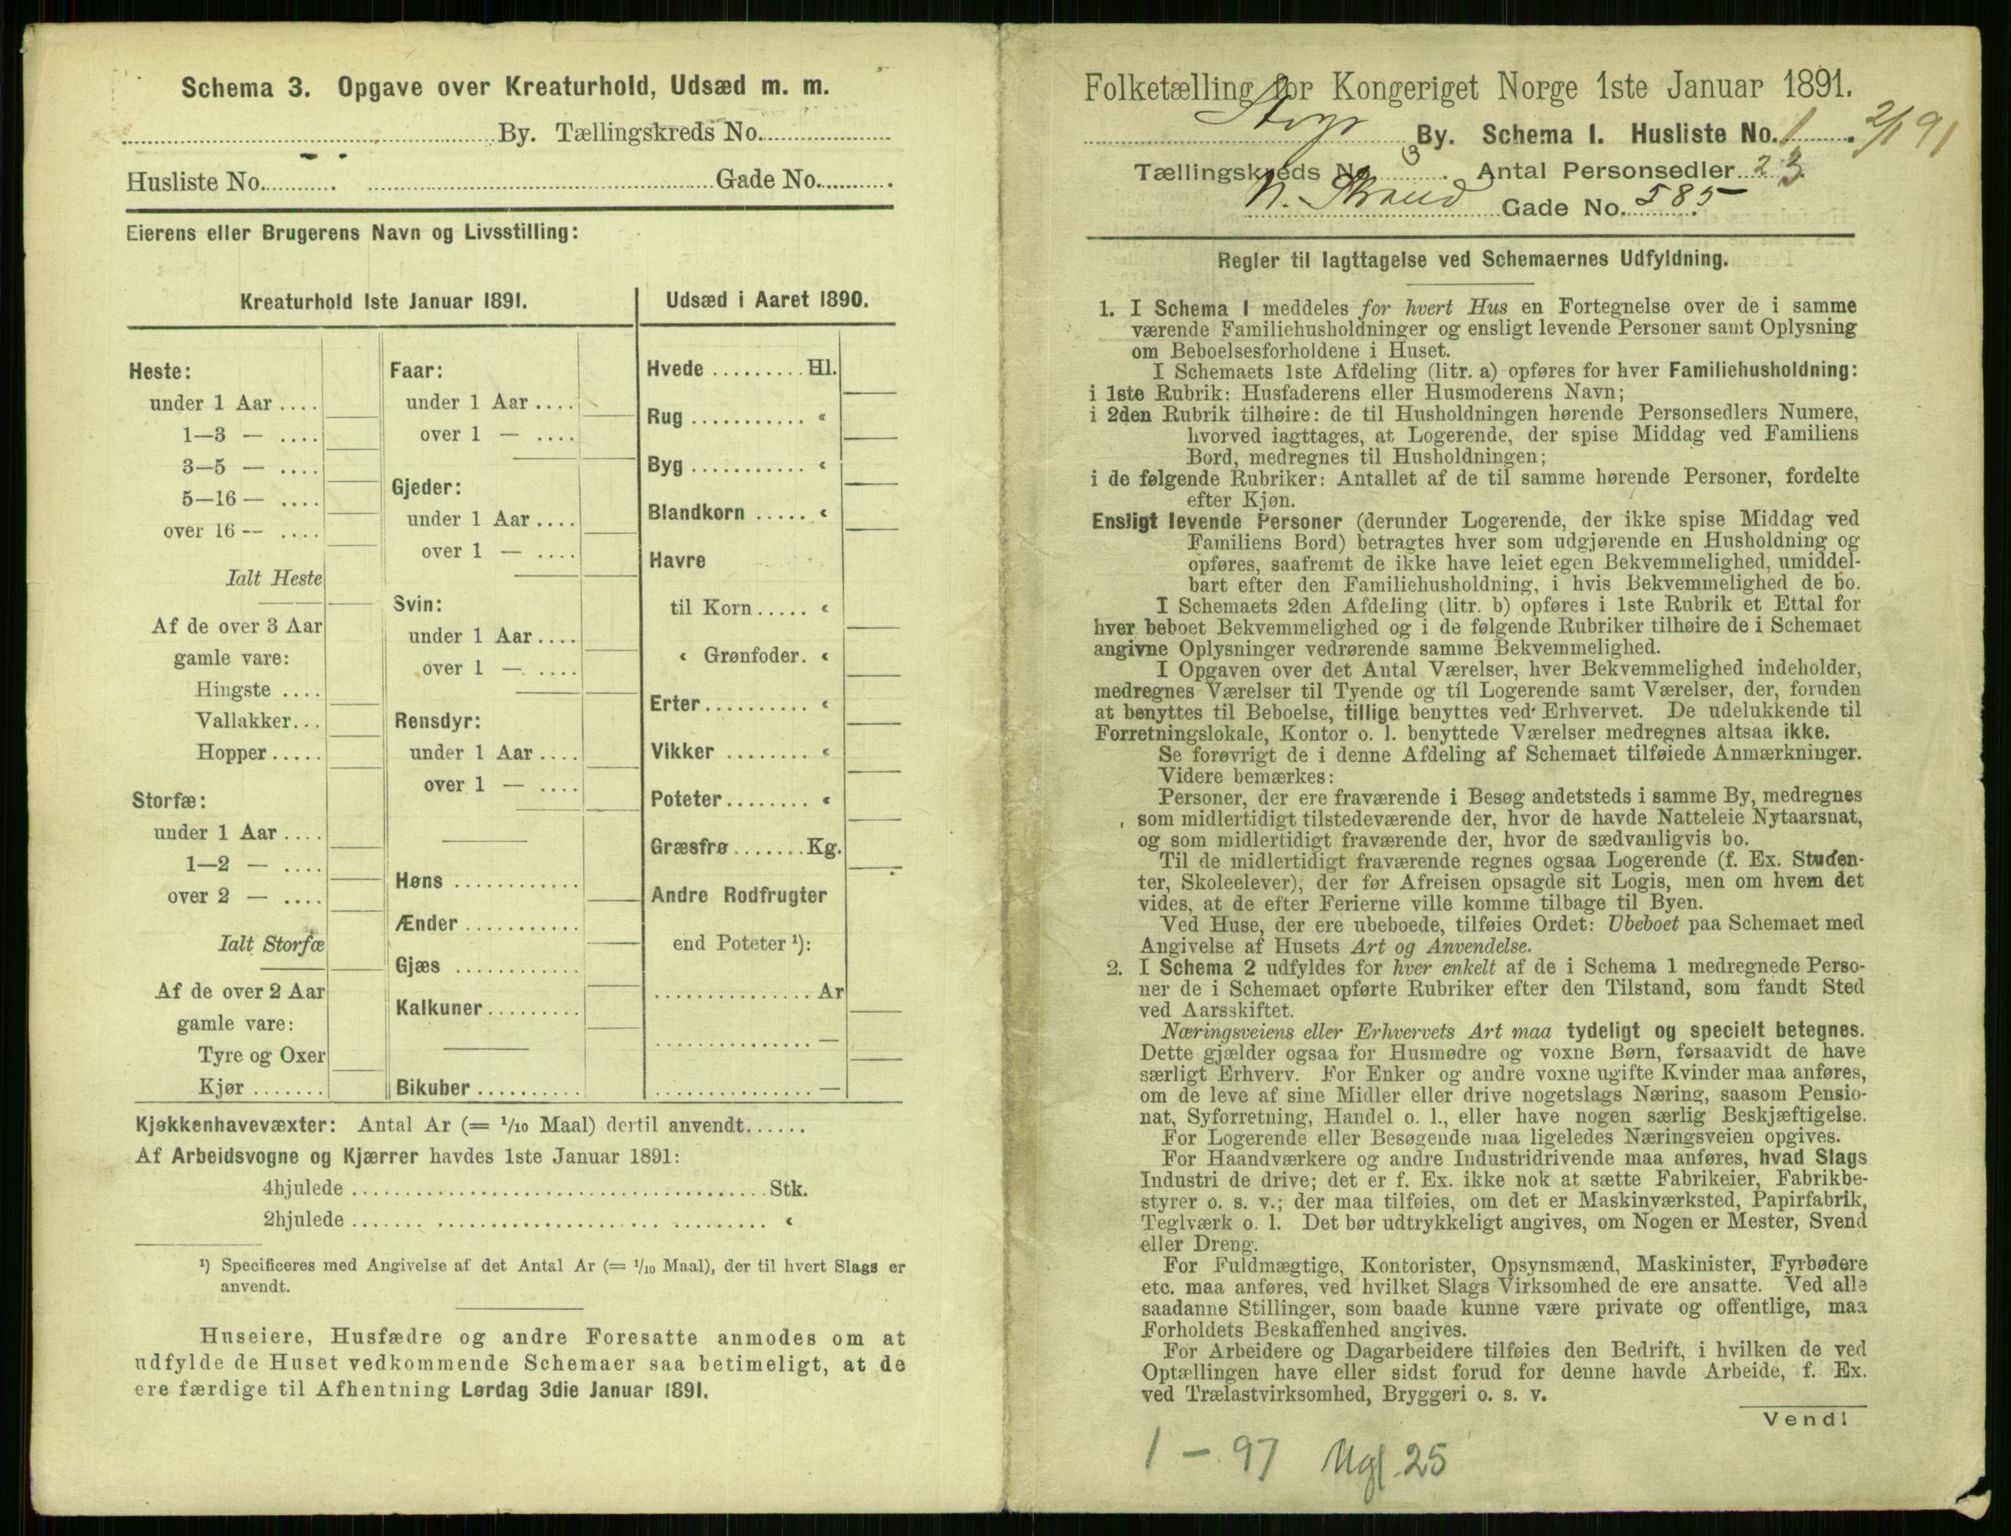 Schema 3. Opgave over Kreaturhold, Udsæd m. m.
By. Tællingskreds No.
Husliste No. Gade No.
Eierens eller Brugerens Navn og Livsstilling:
Kreaturhold 1ste Januar 1891.
Heste:
under 1 Aar ....
1—3 — ....
3—5 — ....
5—16 — ....
over 16 — ....
Ialt Heste
Af de over 3 Aar
gamle vare:
Hingste ....
Vallakker...
Hopper.....
Storfæ:
under 1 Aar ....
1—2 — ....
over 2 — ....
Ialt Storfæ
Af de over 2 Aar
gamle vare:
Tyre og Oxer
Kjør .......
Faar:
under 1 Aar ....
over 1 — ....
Gjeder:
under 1 Aar ....
over 1 — ....
Svin:
under 1 Aar ....
over 1 — ....
Rensdyr:
under 1 Aar ....
over 1 — ....
Høns ...........
Ænder ..........
Gjæs ...........
Kalkuner.........
Bikuber ..........
Udsæd i Aaret 1890.
Hvede ......... Hl.
Rug ........... «
Byg ........... «
Blandkorn ..... «
Havre
til Korn ..... «
« Grønfoder. «
Erter.......... «
Vikker ........ «
Poteter........ «
Græsfrø....... Kg.
Andre Rodfrugter
end Poteter ¹):
............... Ar
............... —
............... —
Kjøkkenhavevæxter: Antal Ar (= 1/10 Maal) dertil anvendt......
Af Arbeidsvogne og Kjærrer havdes 1ste Januar 1891:
4hjulede ...................................... Stk.
2hjulede ...................................... «
¹) Specificeres med Angivelse af det Antal Ar (= 1/10 Maal), der til hvert Slags er
anvendt.
Huseiere, Husfædre og andre Foresatte anmodes om at
udfylde de Huset vedkommende Schemaer saa betimeligt, at de
ere færdige til Afhentning Lørdag 3die Januar 1891.
Folketælling for Kongeriget Norge 1ste Januar 1891.
By. Schema 1. Husliste No. 1. 2/1 91
Tællingskreds No. 3. Antal Personsedler 23
N. Strand Gade No. 585
Regler til Iagttagelse ved Schemaernes Udfyldning.
1. I Schema 1 meddeles for hvert Hus en Fortegnelse over de i samme
værende Familiehusholdninger og ensligt levende Personer samt Oplysning
om Beboelsesforholdene i Huset.
I Schemaets 1ste Afdeling (litr. a) opføres for hver Familiehusholdning:
i 1ste Rubrik: Husfaderens eller Husmoderens Navn;
i 2den Rubrik tilhøire: de til Husholdningen hørende Personsedlers Numere,
hvorved iagttages, at Logerende, der spise Middag ved Familiens
Bord, medregnes til Husholdningen;
i de følgende Rubriker: Antallet af de til samme hørende Personer, fordelte
efter Kjøn.
Ensligt levende Personer (derunder Logerende, der ikke spise Middag ved
Familiens Bord) betragtes hver som udgjørende en Husholdning og
opføres, saafremt de ikke have leiet egen Bekvemmelighed, umiddel-
bart efter den Familiehusholdning, i hvis Bekvemmelighed de bo.
I Schemaets 2den Afdeling (litr. b) opføres i 1ste Rubrik et Ettal for
hver beboet Bekvemmelighed og i de følgende Rubriker tilhøire de i Schemaet
angivne Oplysninger vedrørende samme Bekvemmelighed.
I Opgaven over det Antal Værelser, hver Bekvemmelighed indeholder,
medregnes Værelser til Tyende og til Logerende samt Værelser, der, foruden
at benyttes til Beboelse, tillige benyttes ved Erhvervet. De udelukkende til
Forretningslokale, Kontor o. l. benyttede Værelser medregnes altsaa ikke.
Se forøvrigt de i denne Afdeling af Schemaet tilføiede Anmærkninger.
Videre bemærkes:
Personer, der ere fraværende i Besøg andetsteds i samme By, medregnes
som midlertidigt tilstedeværende der, hvor de havde Natteleie Nytaarsnat,
og som midlertidigt fraværende der, hvor de sædvanligvis bo.
Til de midlertidigt fraværende regnes ogsaa Logerende (f. Ex. Studen-
ter, Skoleelever), der før Afreisen opsagde sit Logis, men om hvem det
vides, at de efter Ferierne ville komme tilbage til Byen.
Ved Huse, der ere ubeboede, tilføies Ordet: Ubeboet paa Schemaet med
Angivelse af Husets Art og Anvendelse.
2. I Schema 2 udfyldes for hver enkelt af de i Schema 1 medregnede Perso-
ner de i Schemaet opførte Rubriker efter den Tilstand, som fandt Sted
ved Aarsskiftet.
Næringsveiens eller Erhvervets Art maa tydeligt og specielt betegnes.
Dette gjælder ogsaa for Husmødre og voxne Børn, forsaavidt de have
særligt Erhverv. For Enker og andre voxne ugifte Kvinder maa anføres,
om de leve af sine Midler eller drive nogetslags Næring, saasom Pensio-
nat, Syforretning, Handel o. l., eller have nogen særlig Beskjæftigelse.
For Logerende eller Besøgende maa ligeledes Næringsveien opgives.
For Haandværkere og andre Industridrivende maa anføres, hvad Slags
Industri de drive; det er f. Ex. ikke nok at sætte Fabrikeier, Fabrikbe-
styrer o. s. v.; der maa tilføies, om det er Maskinværksted, Papirfabrik,
Teglværk o. l. Det bør udtrykkeligt angives, om Nogen er Mester, Svend
eller Dreng.
For Fuldmægtige, Kontorister, Opsynsmænd, Maskinister, Fyrbødere
etc. maa anføres, ved hvilket Slags Virksomhed de ere ansatte. Ved alle
saadanne Stillinger, som baade kunne være private og offentlige, maa
Forholdets Beskaffenhed angives.
For Arbeidere og Dagarbeidere tilføies den Bedrift, i hvilken de ved
Optællingen have eller sidst forud for denne havde Arbeide, f. Ex.
ved Trælastvirksomhed, Bryggeri o. s. v.
Vend!
1 – 97 Mgl. 25